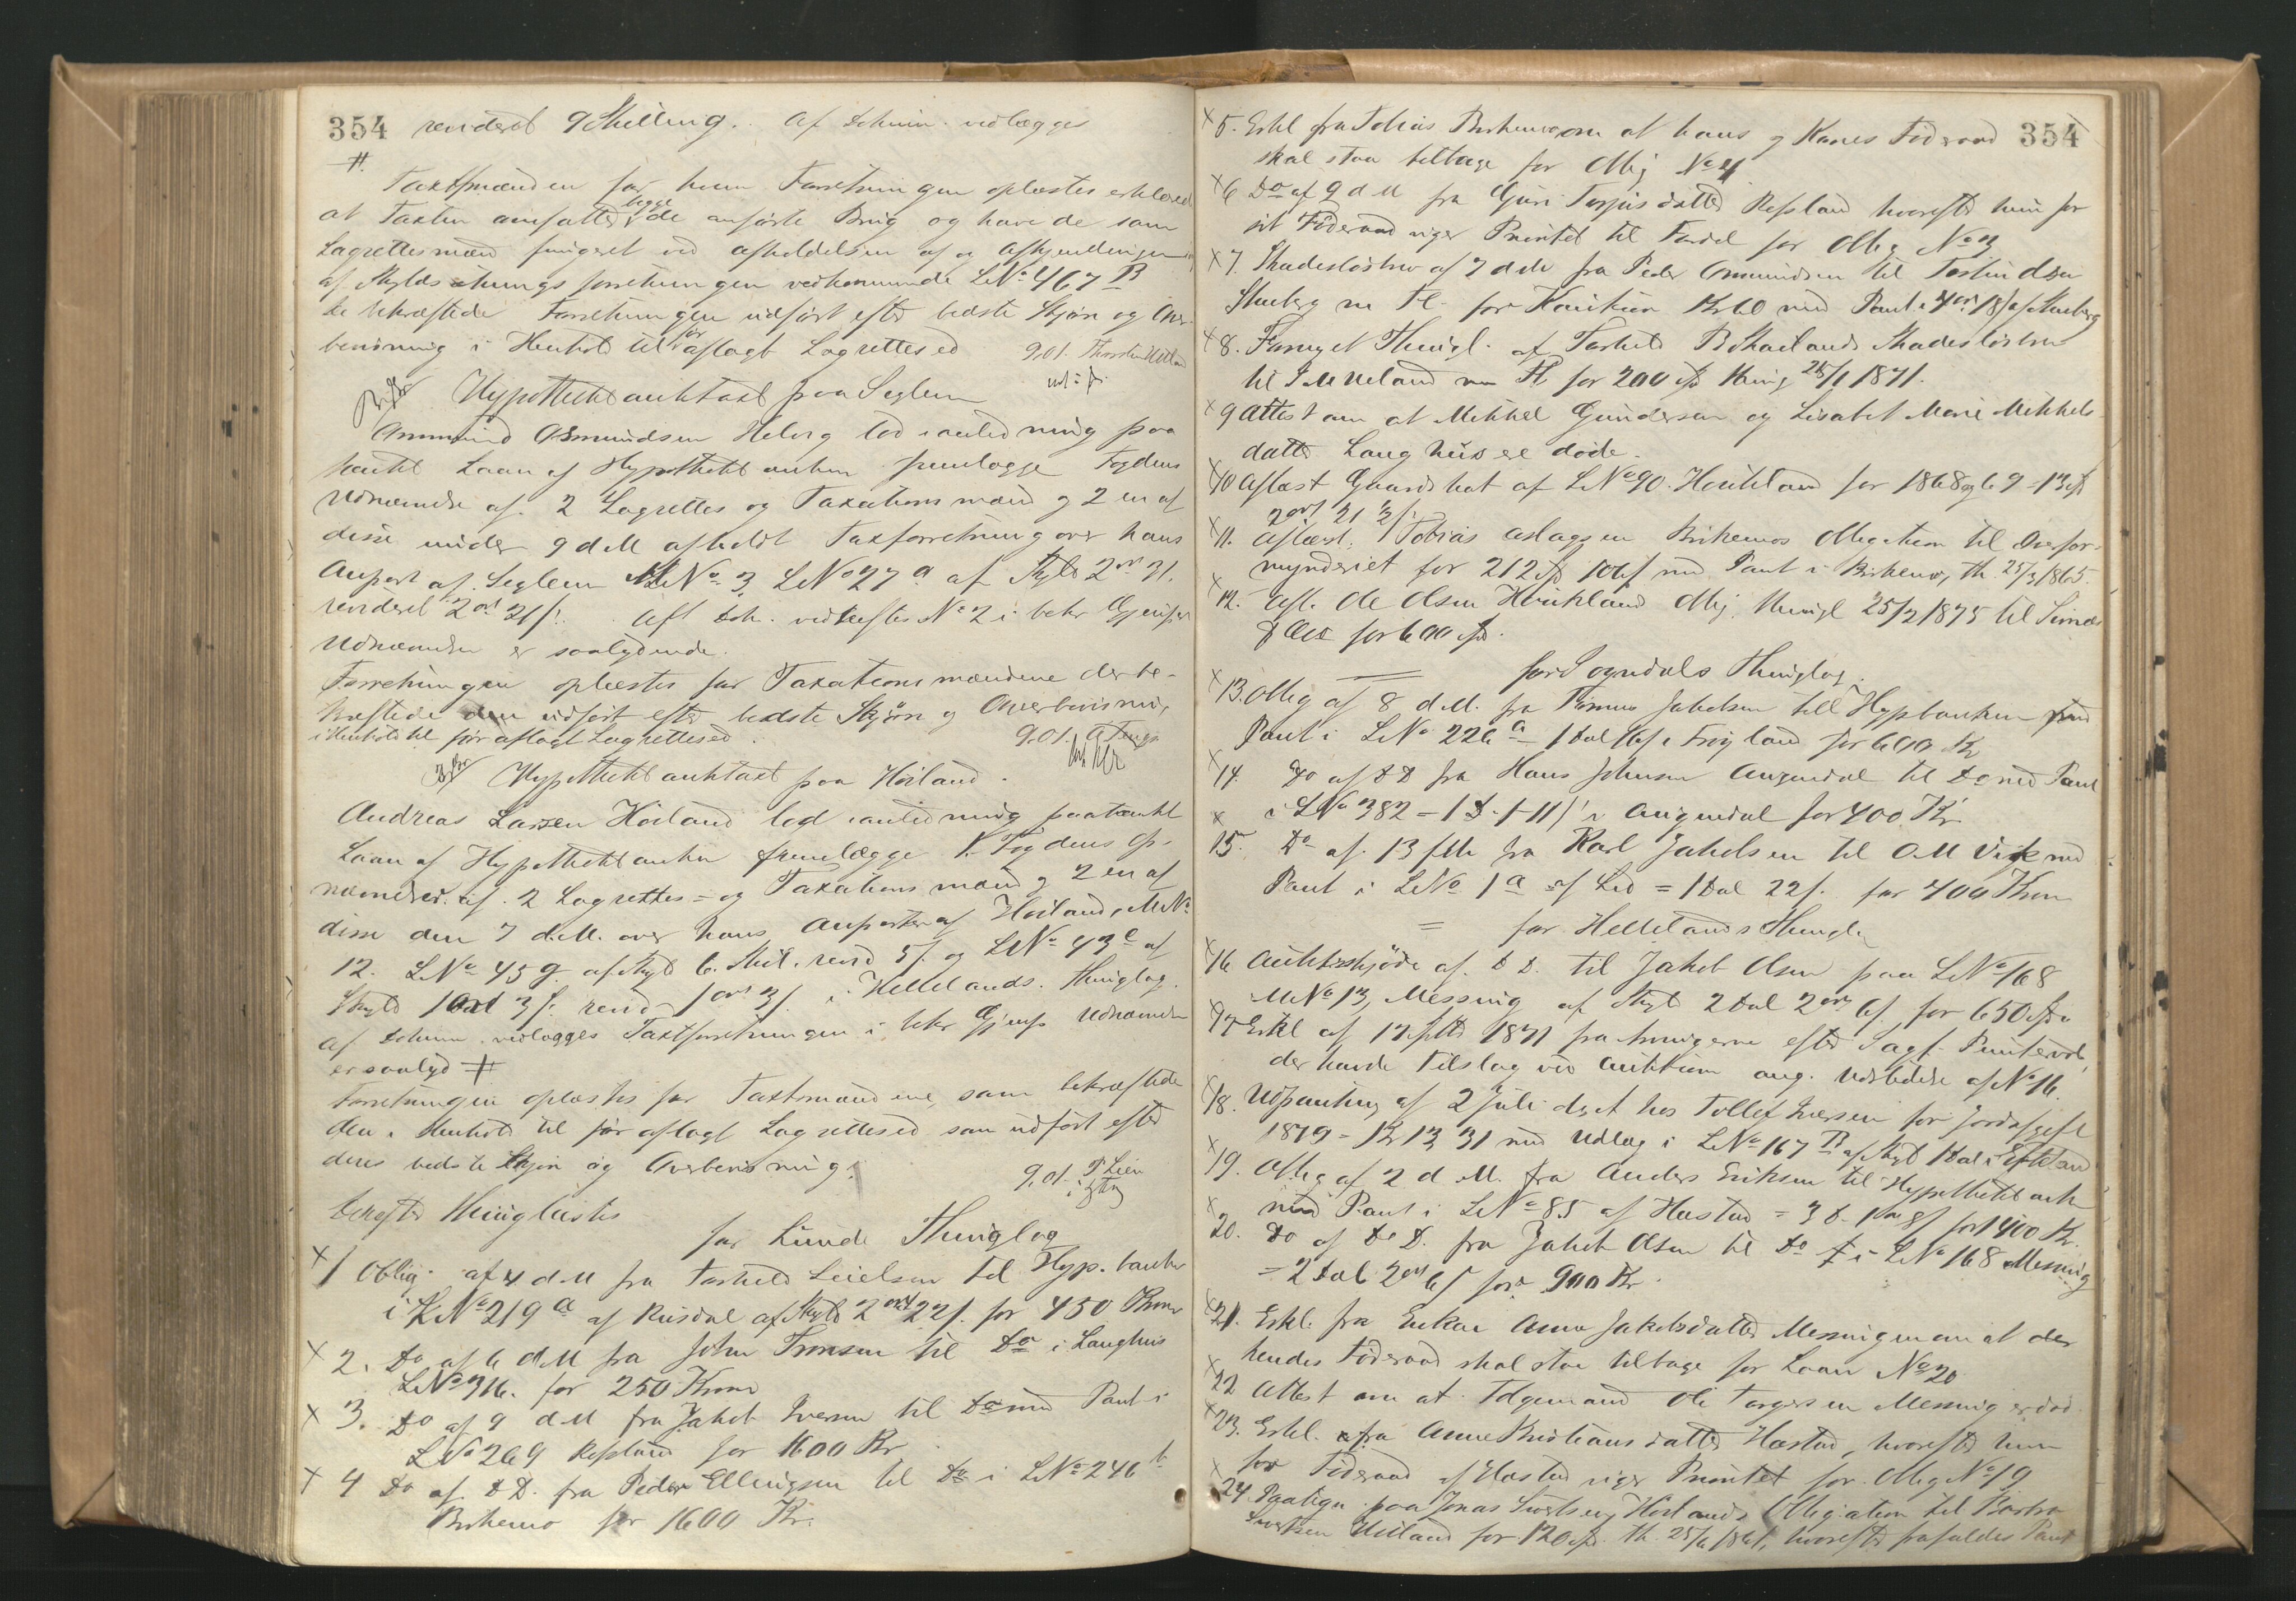 354 revideret 9 Skilling. Af Schum. vedlægges
#.
Taxtmænden for hvem Forretningen oplæstes erklæred
at Taxten ansatte begge de anførte Brug og have de som
Lagrettesmænd fungeret ved afholdelsen af og afhjemlingen
af Skyldsætnings forretningen vedkommende LNo 467 B
de bekræftede Forretningen udført efter bedste Skjøn og Over-
bevisning i Henhold til før aflagt Lagrettesed 9.01.
Hypothekbanktaxt paa Seglem
Ommund Osmundsen Heberg lod i anledning paa
tænkt Laan af Hypothekbanken fremlægge Fogdens
Udnævnelse af 2 Lagrettes og Taxations mænd og 2 en af
disse under 9 d M afholdt Taxforretning over hans
Anpart af Seglem MNo 3, LNo 27 a af Skyld 2 ort 31.
revideret 2 ort 21 s. Aft Sch. vedhæftes No 2 i bekr Gjenpart
Udnævnelsen er saalydende.
Forretningen oplæstes for Taxationsmændene der be-
kræftede den udført efter bedste Skjøn og Overbevisning
i Henhold til før aflagt Lagrettesed. 9.01.
Hypothekbanktaxt paa Höiland.
Andreas Larsen Höiland lod i anledning paatænkt
Laan af Hypothekbanken fremlægge K. Fogdens Op-
nævnelse af 2 Lagrettes= og Taxations mænd og 2 en af
disse den 7 d.M. over hans Anparter af Höiland, MNo
12. LNo 45 g af Skyld 6. Skil. revid 5 s. og LNo 43 e af
Skyld 1 Ort 3 s. revid 1 ort 3 s. i Hellelands Thinglag.
Af Schum vedlægges Taxtforretningen i bekr Gjenp Udnævnelsen
er saalyd #
Forretningen oplæstes for Taxtmændene, som bekræftede
den i Henhold til før aflagt Lagrettesed som udført efter
deres bedste Skjøn og Overbevisning. 9.01. Lien
Derefter Thinglæstes
for Lunde Thinglag
x 1 Oblig. af 4 d M fra Torkeld Leielsen til Hyp. banken
i LNo 219 a af Rusdal af Skyld 2 ort 22 s. for 450 Kroner
x 2. Do af 6 d M fra John Tronsen til Do i Laughus
LNo 316. for 250 Kroner
x 3. Do af 9 d M fra Jakob Iversen til Do med Pant i
LNo 269 Refsland for 1600 Kr
x 4 Do af D D. fra Peder Ellingsen til Do i LNo 246 b
Birkemo for 1600 Kr.
x 5. Erkl fra Tobias Birkemo om at hans og Kones Föderaad 354
skal staa tilbage for Oblig No 4
x 6 Do af 9 d M fra Guri Torjusdatter Refsland hvorefter hun for
sit Föderaad viger Prioritet til Fordel for Oblig No 3
x 7. Skadeslösbrev af 7 d M fra Peder Ommundsen til Tostin
Stuberg m Fl. for Kaution Kr 60 med Pant i 4 ort 18 s af Stuberg
x 8. Fornyet Thingl. af Torkild B Skailands Skadeslösbrev
til I M Ueland m Fl for 200 Spd thing 25/1 1871.
x 9 Attest om at Mikkel Gundersen og Lisabet Marie Mikkels-
datter Laughus ere döde.
x 10 Aflæst Gaardshat af LNo 90. Houkland for 1868 og 69 = 13 Spd
2 ort 21 s
x 11. Aflæst, Tobias Aslagsen Birkemos Obligation til Overfor-
mynderiet for 212 Spd 106 s med Pant i Birkemo, th. 25/3 1865.
x 12. Afl. Ole Olsen Houkland Oblig. thingl 25/2 1875 til Simon
for 600 Spd.
for Sogndals Thinglag.
x 13. Oblig af 8 d.M. fra Tönnes Jakobsen till Hypbanken med
Pant i LNo 226 a = 1 Dal 16 s i Fröyland for 600 Kr
x 14. Do af D D fra Hans Johnsen Augendal til Do med Pant
i LNo 382 = 1 D. 1-11 s i Augendal for 400 Kr
x 15. Do af 13 f M. fra Karl Jakobsen til O.M Vigke med
Pant i LNo 1 a af Lid = 1 Dal 22 s. for 400 Kron
= for Hellelands Thinglag
x 16 Auktskjöde af D D. til Jakob Olsen paa LNo 168
MNo 13, Messing af Skyld 2 Dal 2 ort 6 s. for 650 Spd
x 17 Erkl af 17 Septb 1871 fra Arvingerne efter Sagf. Puntervold
der havde Tilslag ved Auktion ang. Udstedelse af No 16.
x 18. Udpantning af 2 Juli d. A. hos Tollef Iversen for Jordafgift
1879 = Kr 13 31 med Udlæg i LNo 167 B af Skyld 1 Dal i Efteland
x 19. Oblig af 2 d M. fra Anders Eriksen til Hypothekbank
med Pant i LNo 85 af Hæstad = 3 D. 1 ort 8 s for 1400 Kr.
x 20. Do af D D. fra Jakob Olsen til Do i LNo 168 Messing
= 2 Dal 2 ort 6 s for 900 Kr.
x 21. Erkl. fra Enken Anna Jakobsdatter Messingen om at der
hendes Föderaad skal staa tilbage for Laan No 20
x 22 Attest om at Fölgemand Ole Torgersen Messing er död.
x 23. Erkl. fra Anne Kristiansdatter Hæstad, hvorefter hun
for Föderaad af Hæstad viger Prioritet for Oblig No 19
x 24. Paategn. paa Jonas Sivertsen Höilands Obligation til Bertha
Sivertsen Höiland for 120 Spd. th. 25/6 1861, hvorefter frafaldes Pant